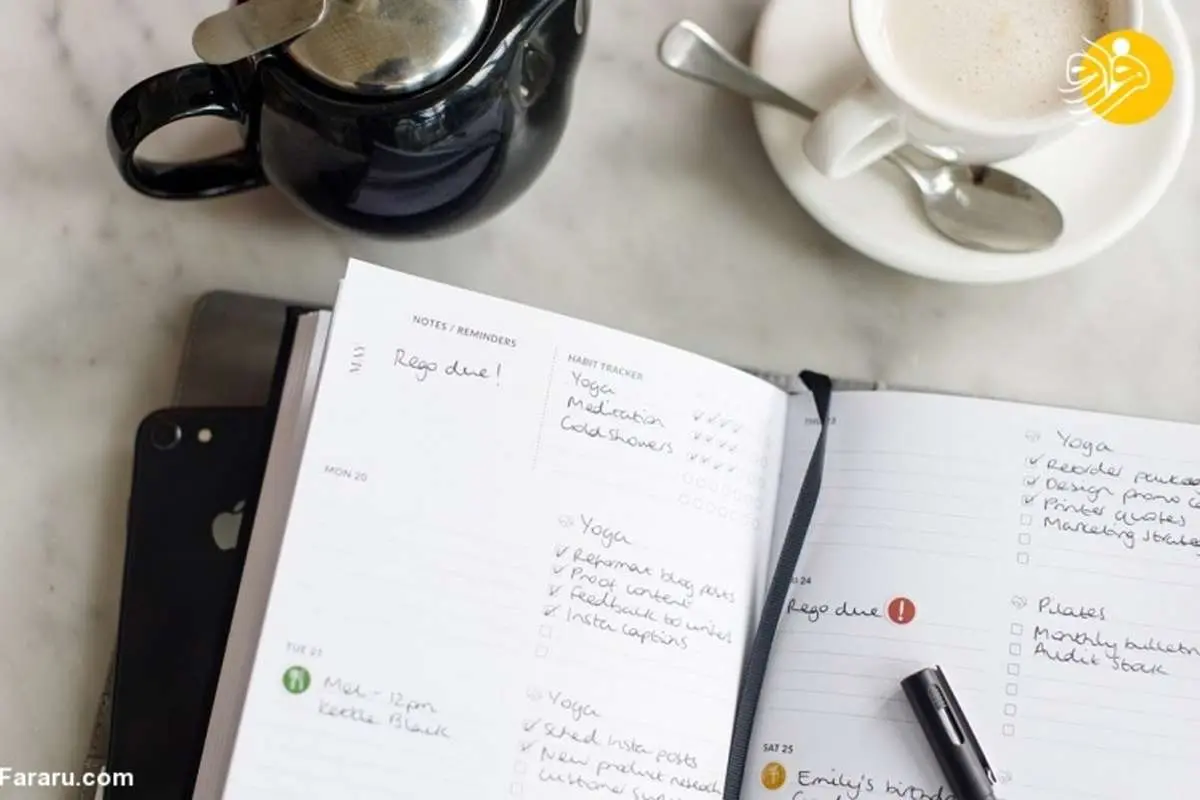 فرارو
NOTES / REMINDERS
MAY
Rego due!
HABIT TRACKER
Yoga
Meditation
Cold showers
MON 20
Yoga
Reformat blog posts
Proof content
Feedback to writers
Insta captions
TUE 21
12pm
Kettle Black
Yoga
Sched insta posts
New product research
Customer
THU 23
Yoga
Reorder
Design promo
Printer quotes
Marketing
24
Rego due
Pilates
Monthly
Audit stock
SAT 25
Emily's
Fararu.com